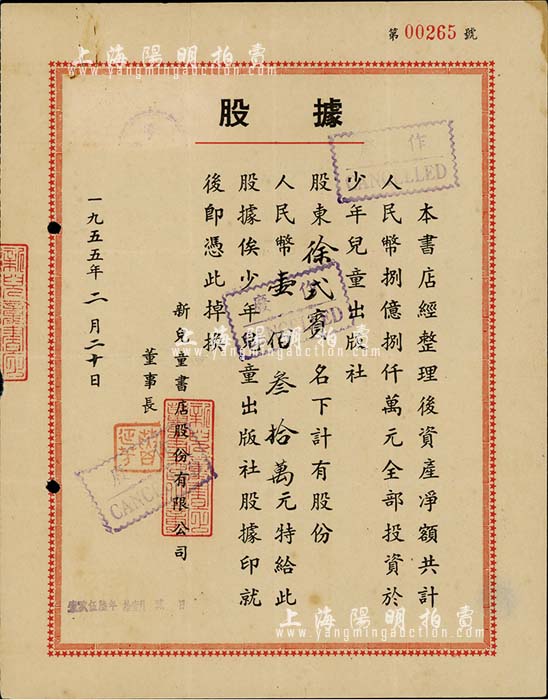 上海陽明拍賣
www.yangmingauction.com
第 00265 號
股據
本書店經整理後資產凈額共計
人民幣捌億捌仟萬元全部投資於
少年兒童出版社
股東徐弍寶名下計有股份
人民幣壹佰叁拾萬元特給此
股據俟少年兒童出版社股據印就
後卽憑此掉換
新兒童書店股份有限公司
董事長
一九五五年二月二十日
作
CANCELLED
作廢
CANCELLED
廢
CANCELLED
上海陽明拍賣
www.yangmingauction.com
上海陽明拍賣
www.yangmingauction.com